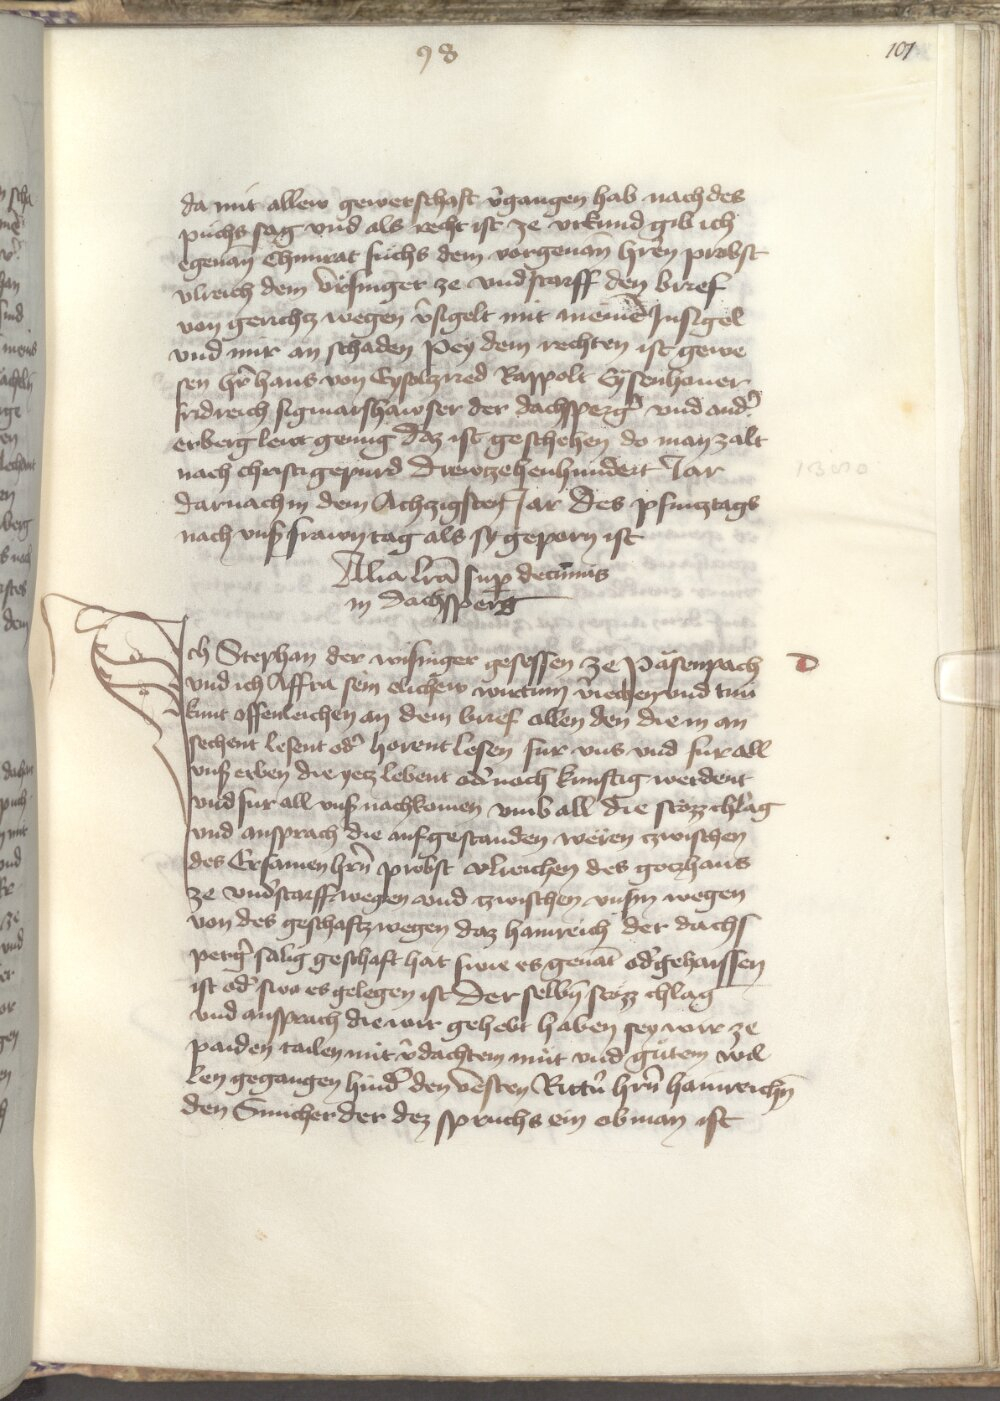 98
101
da mit allew gewerschaft v̂gangen hab nach des
puchs sag vnd als recht ist ze vrkund gib ich
egenan̄ Chunrat fuchs dem vorgenan hern̄ probst
vlreich dem vr̈singer ze vnd̉starff den brief
von gerichtz wegen v̂sigelt mit meinē Insigel
vnd mir an schaden Pey dem rechten ist gewe
sen hr̄ hans von Eysoltzried Rappolt Eysenhouer
fridreich sigmarshawser der dachsperg̉ vnd and̉
erberg lewt genug daz ist geschehen do man zalt
nach christi gepurd drewtzehenhundert Jar
darnach in dem Achzigsten Jar des pfintztags
nach vnß frawn tag als sy geporn ist
1380
Alia lr̄a sup̱ decimis
in dachsperg
Ich Stephan der wisinger gesessen ze Päsenpach
vnd ich Affra sein elichew wirtinn v̂iechen vnd tun
kunt offenleichen an dem brief allen den die in an
sechent lesent od̉ horent lesen fur vns vnd fur all
vnß erben die yetz lebent od̉ noch kunftig werdent
vnd fur all vnß nachkomen vmb all die stözz chläg
vnd ansprach die aufgestanden weren tzwischen
des Ersamen hrn̄ probst vlreichen des gotzhaus
ze vnd̉starff wegen vnd tzwischen vnsn̄ wegen
von des geschaftz wegen daz hainreich der dachs
perg̉ sälig geschaft hat swie es genāt od̉ gehaissen
ist od̉ swo es gelegen ist Der selbn̄ stözz chlag
vnd ansprach die wir gehebt haben sey wir ze
paiden tailen mit v̂dachtem müt vnd gütem wil
len gegangen hind̉ den vesten Ritt̉ hrn̄ hainreichn̄
den Smicher der dez spruchs ein obman ist